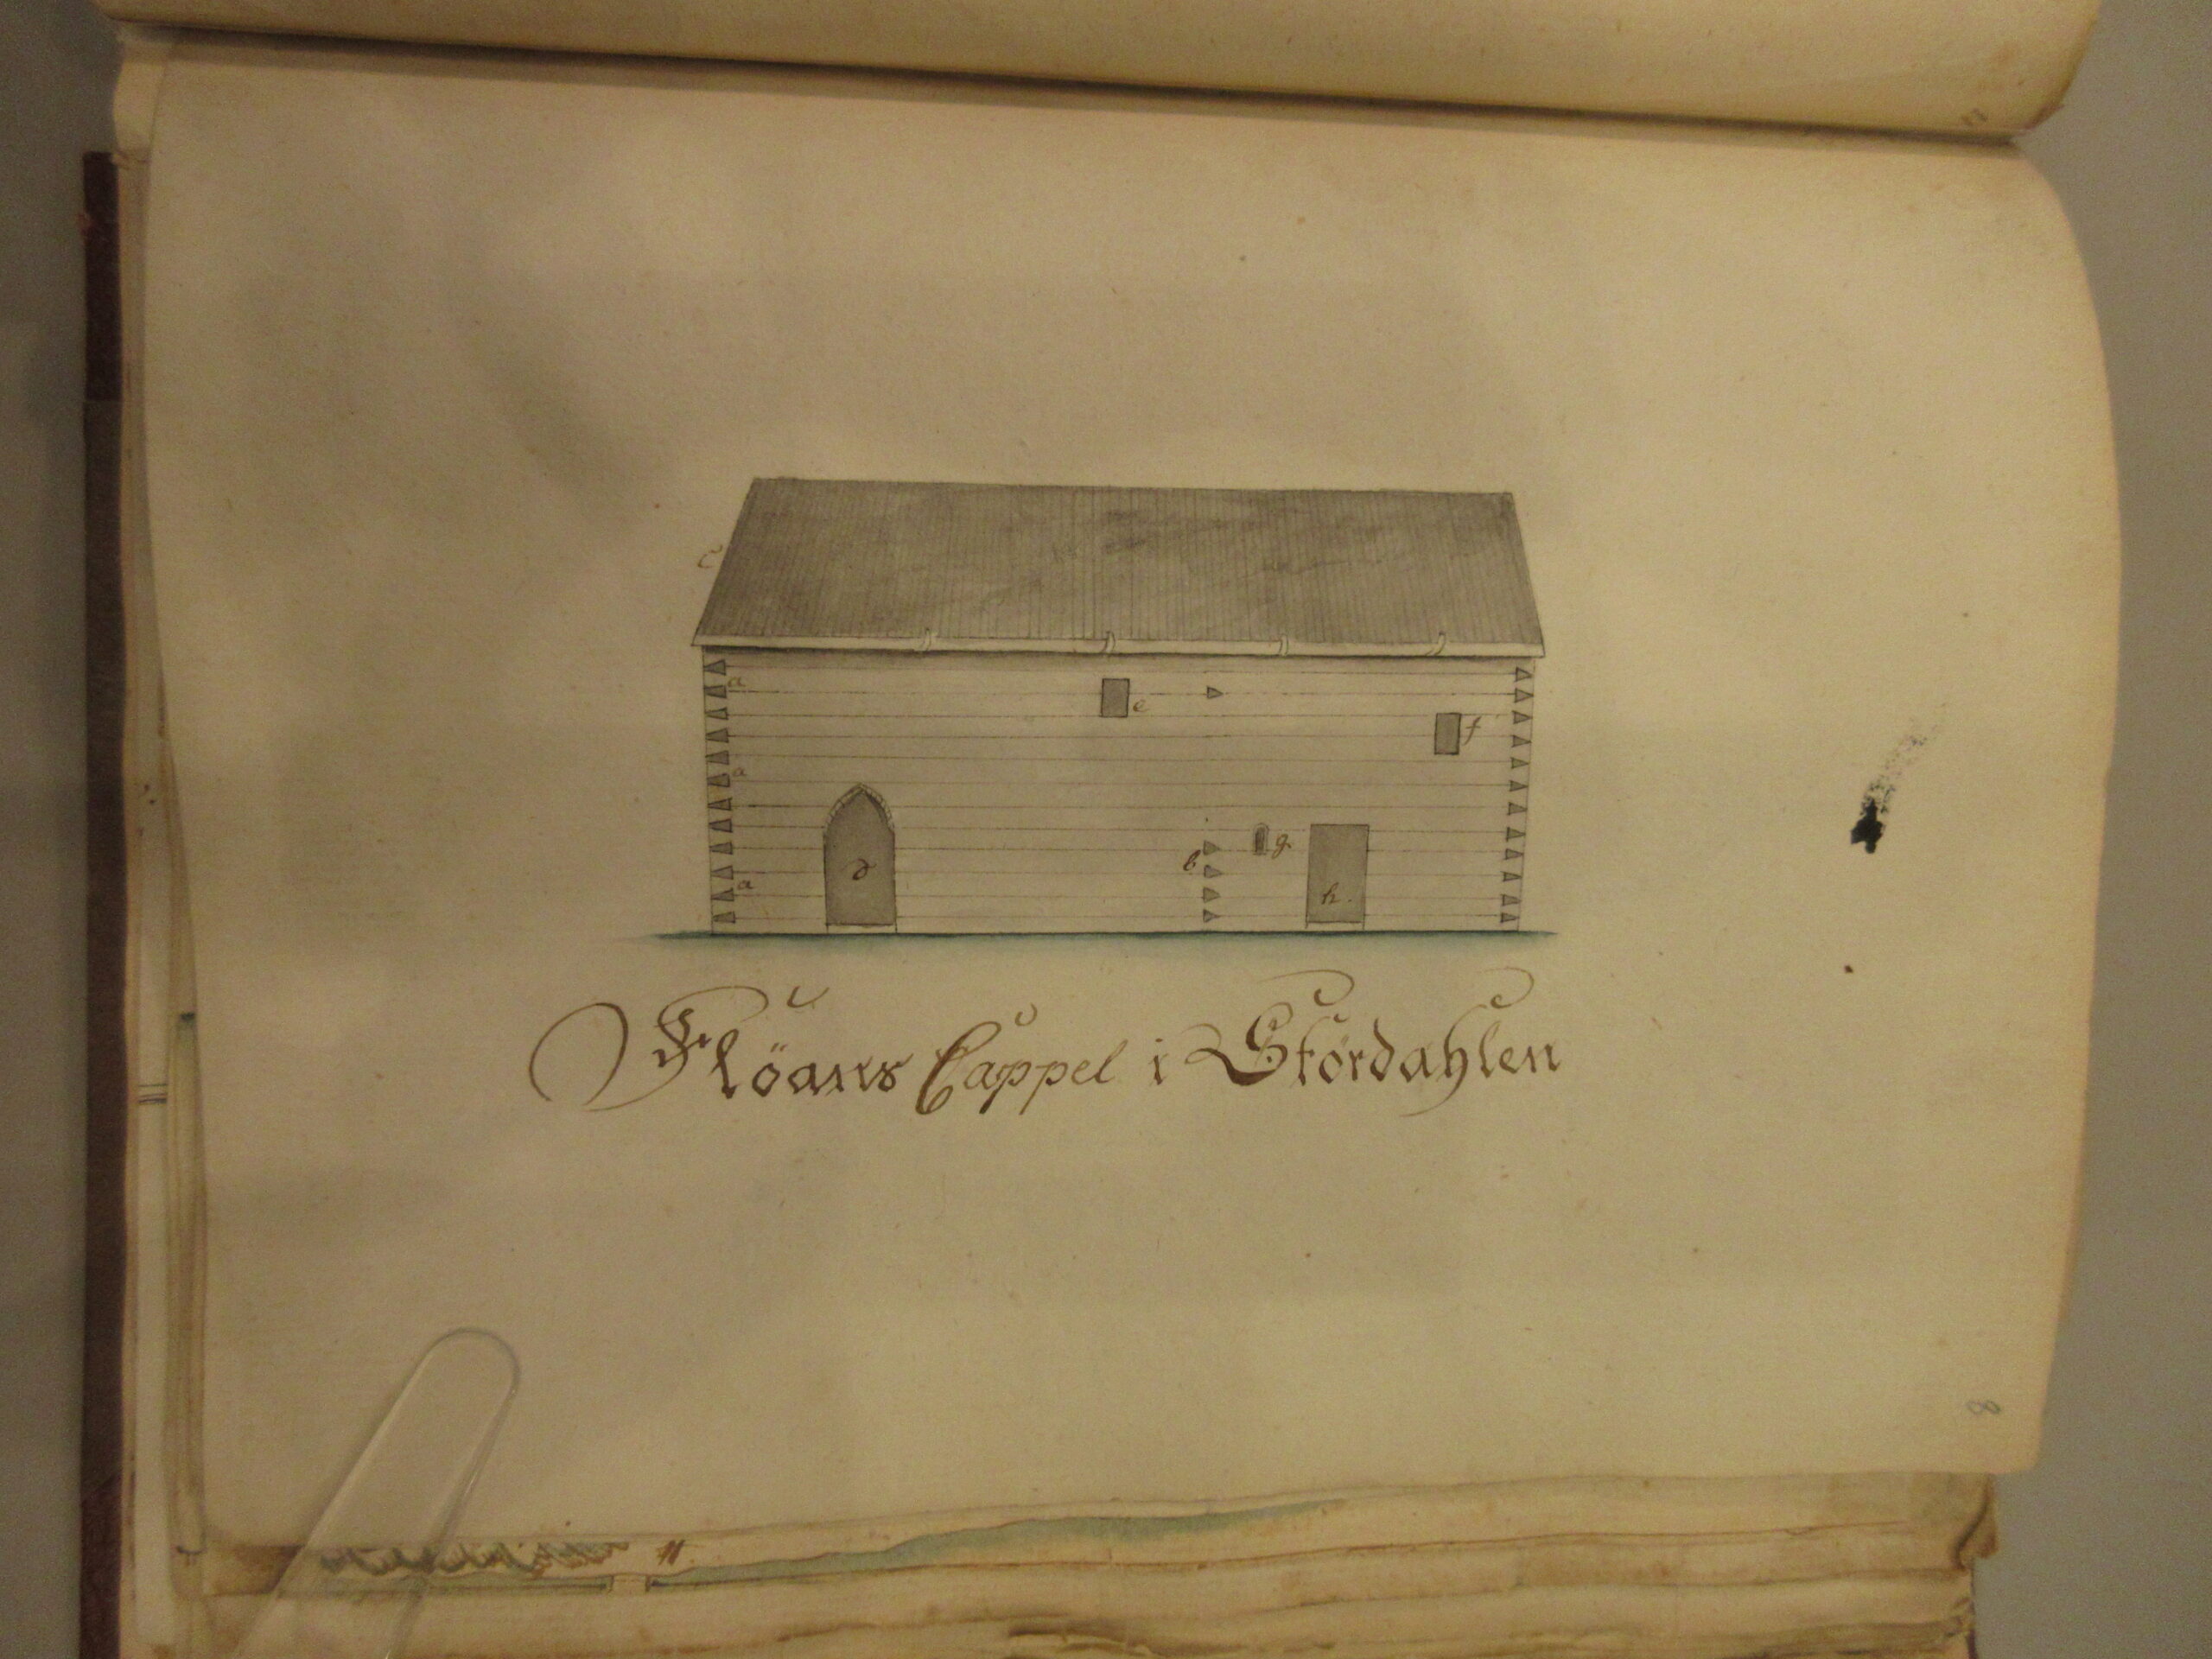 c
a
e
f
a
d
b
g.
h.
a
Flöans Cappel i Stördahlen
8
11.